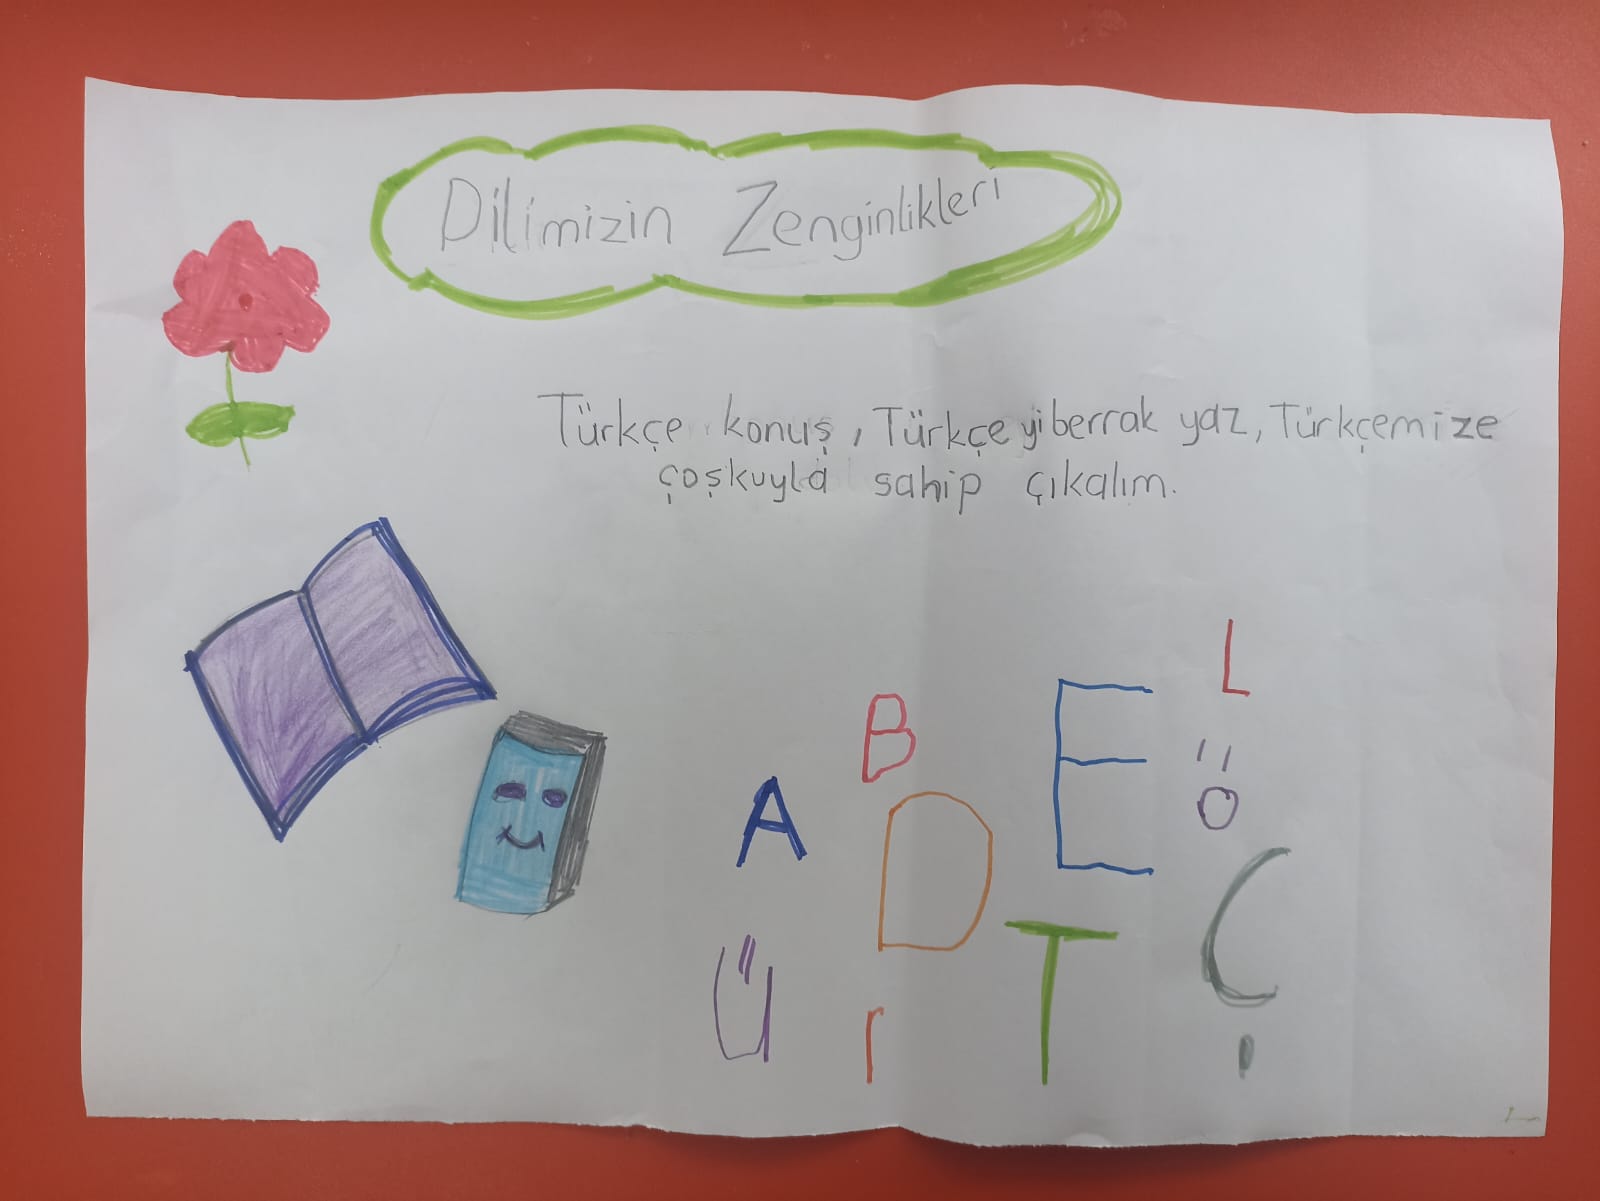 Dilimizin Zenginlikleri
Türkçe konuş, Türkçeyi berrak yaz, Türkçemize
çoşkuyla sahip çıkalım.
L
B E
Ö
A D
Ç
Ü r T